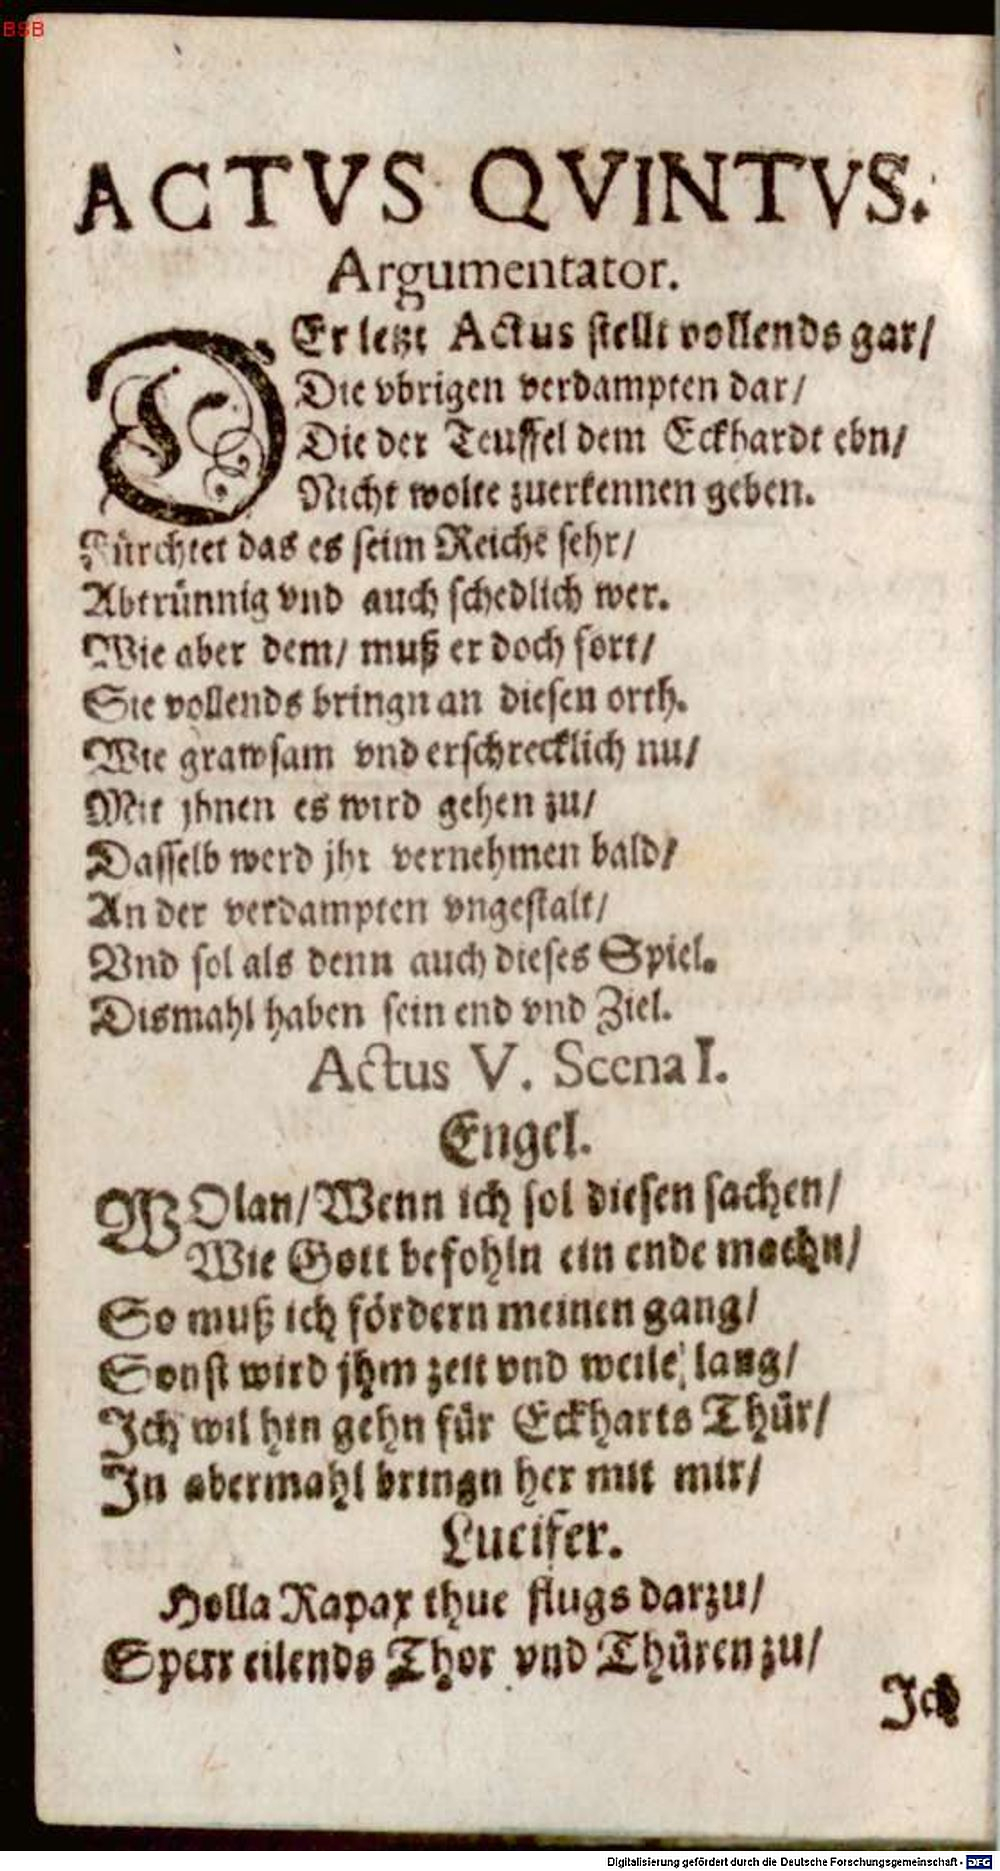 BSB
ACTVS QVINTVS.
Argumentator.
DEr letzt Actus stellt vollends gar/
Die vbrigen verdampten dar/
Die der Teuffel dem Eckhardt ebn/
Nicht wolte zuerkennen geben.
Fürchtet das es seim Reiche sehr/
Abtrünnig vnd auch schedlich wer.
Wie aber dem/ muß er doch fort/
Sie vollends bringn an diesen orth.
Wie grawsam vnd erschrecklich nu/
Mit jhnen es wird gehen zu/
Dasselb werd jhr vernehmen bald/
An der verdampten vngestalt/
Vnd sol als denn auch dieses Spiel.
Dismahl haben sein end vnd Ziel.
Actus V. Scena I.
Engel.
WOlan/ Wenn ich sol diesen sachen/
Wie Gott befohln ein ende machn/
So muß ich fördern meinen gang/
Sonst wird jhm zeit vnd weile lang/
Ich wil hin gehn für Eckharts Thür/
In abermahl bringn her mit mir/
Lucifer.
Holla Rapax thue flugs darzu/
Sperr eilends Thor vnd Thüren zu/
Ich
Digitalisierung gefördert durch die Deutsche Forschungsgemeinschaft - DFG